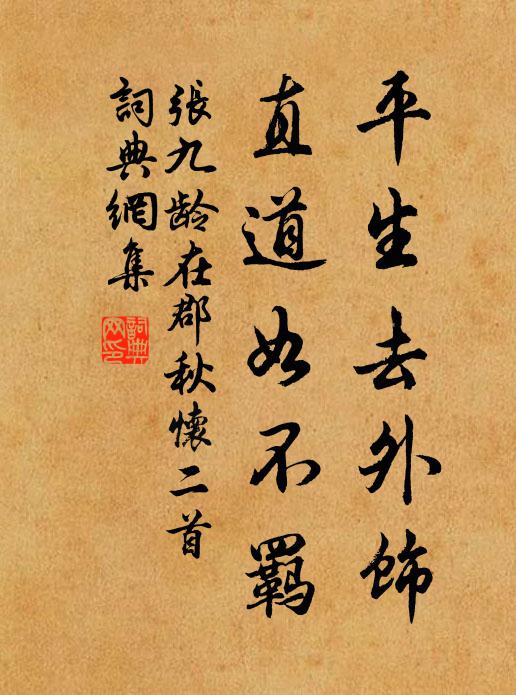 平生去外饰
直道如不羁
張九龄在郡秋懷二首
詞典網集
詞典網印